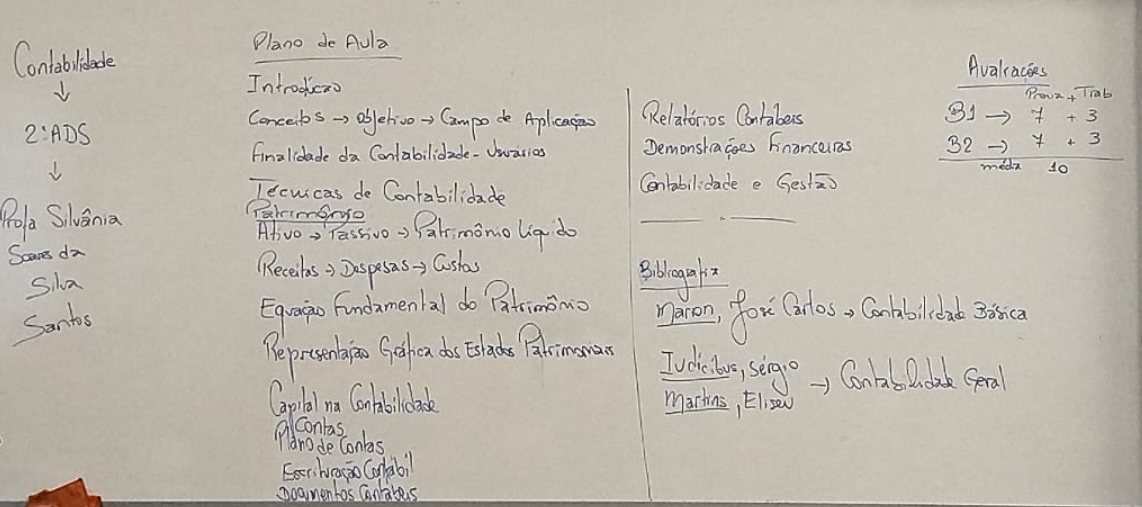 Contabilidade
↓
2º ADS
↓
Profa Silvânia
Soares da
Silva
Santos
Plano de Aula
Introdução
Conceitos → Objetivo → Campo de Aplicação
Finalidade da Contabilidade - Usuários
Técnicas de Contabilidade
Patrimônio
Ativo → Passivo → Patrimônio Líquido
Receitas → Despesas → Custos
Equação Fundamental do Patrimônio
Representação Gráfica dos Estados Patrimoniais
Capital na Contabilidade
Contas
Plano de Contas
Escrituração Contábil
Documentos Contábeis
Relatórios Contábeis
Demonstrações Financeiras
Contabilidade e Gestão
Bibliografia
Marion, José Carlos → Contabilidade Básica
Iudícibus, Sérgio
Martins, Eliseu → Contabilidade Geral
Avaliações
Prova + Trab
B1 → 7 + 3
B2 → 7 + 3
média 10